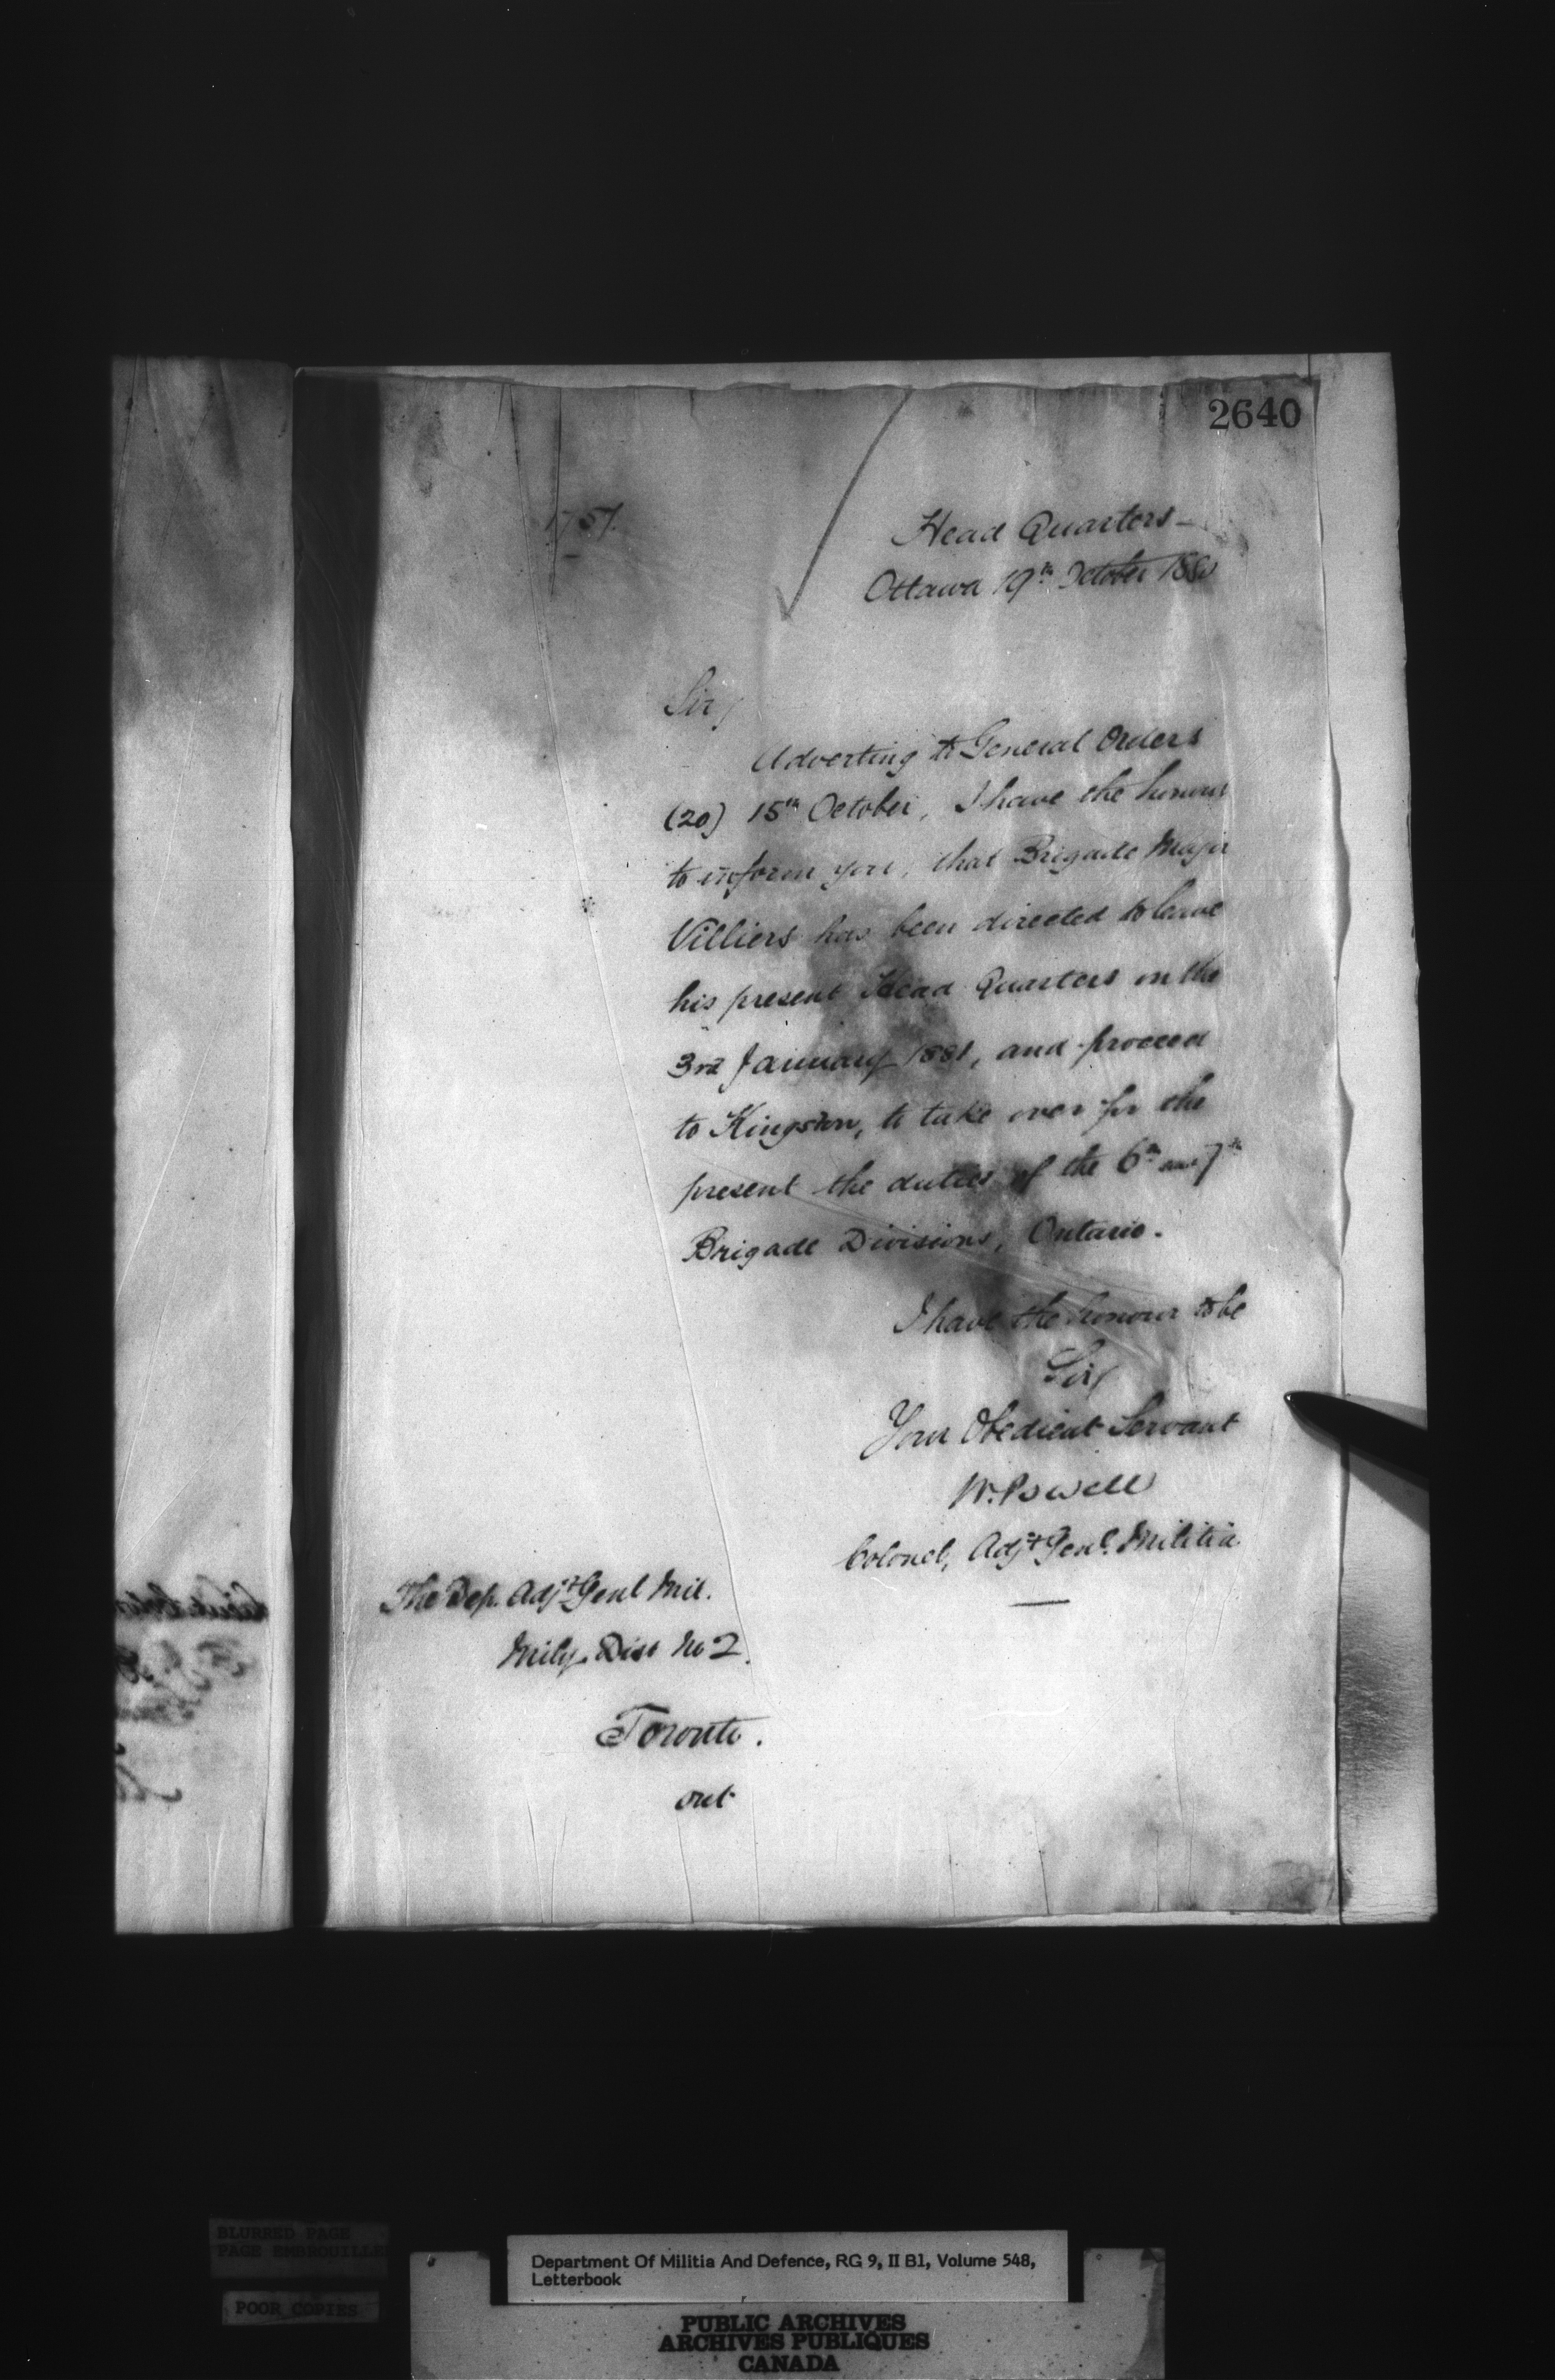 2640
1757.
Head Quarters -
Ottawa 19th October 1880
Sir/
Adverting to General Orders
(20) 15th October, I have the honour
to inform you, that Brigade Major
Villiers has been directed to leave
his present Head Quarters on the
3rd January 1881, and proceed
to Kingston, to take over for the
present the duties of the 6th and 7th
Brigade Divisions, Ontario.
I have the honour to be
Sir/
Your Obedient Servant
W. Powell
Colonel, Adjt Genl. Militia
The Dep. Adjt Genl Mil.
Mily. Dist No 2.
Toronto.
Ont
BLURRED PAGE
PAGE EMBROUILLE
POOR COPIES
Department Of Militia And Defence, RG 9, II B1, Volume 548,
Letterbook
PUBLIC ARCHIVES
ARCHIVES PUBLIQUES
CANADA